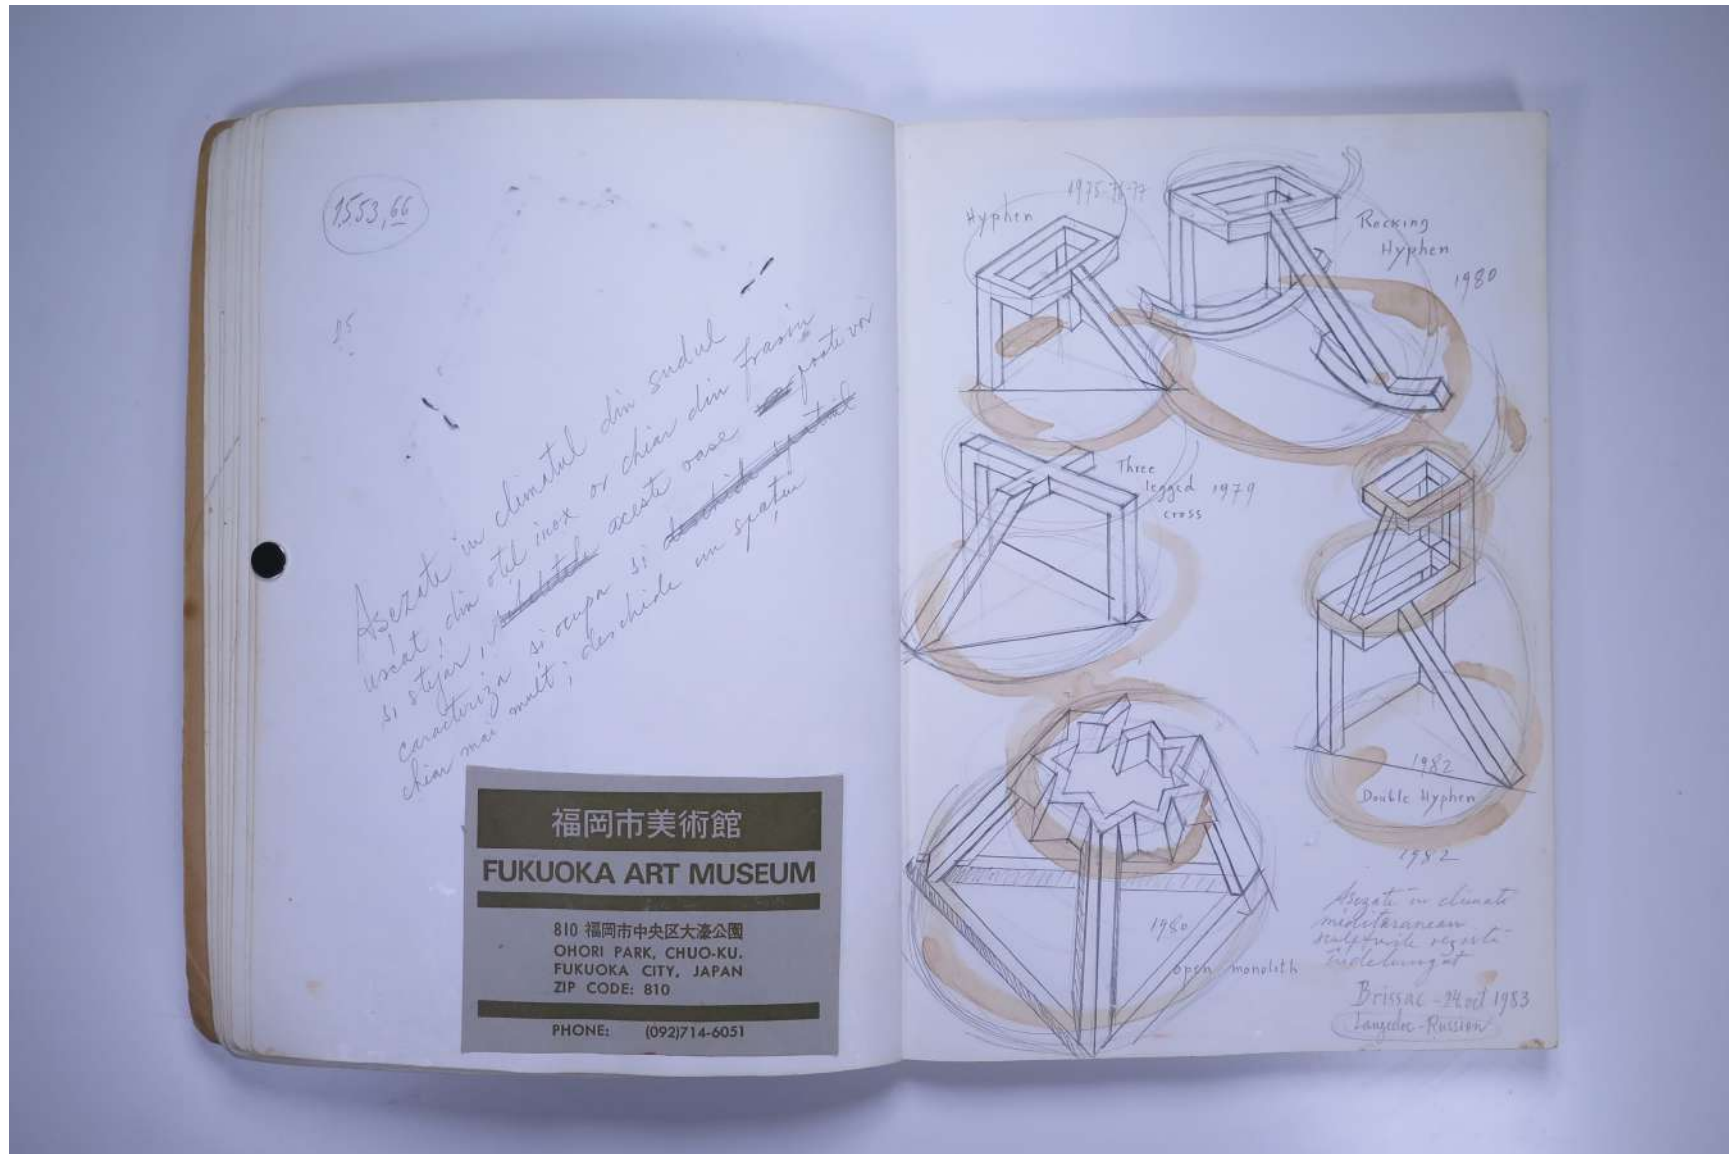 1553,66
25
Asezate in climatul din sudul
uscat, din otel inox or chiar din frasin
si stejar, aceste vase poate vor
caracteriza si ocupa si deschide spatiul
chiar mai mult; deschide un spatiu
福岡市美術館
FUKUOKA ART MUSEUM
810 福岡市中央区大濠公園
OHORI PARK, CHUO-KU.
FUKUOKA CITY, JAPAN
ZIP CODE: 810
PHONE: (092)714-6051
Hyphen
1975-76-77
Rocking
Hyphen
1980
Three
legged 1979
cross
1982
Double Hyphen
1982
1980
open monolith
Asezate in climate
mediteranean
sculpturile rezista
indelungat
Brissac - 24 oct 1983
Langedoc-Russion